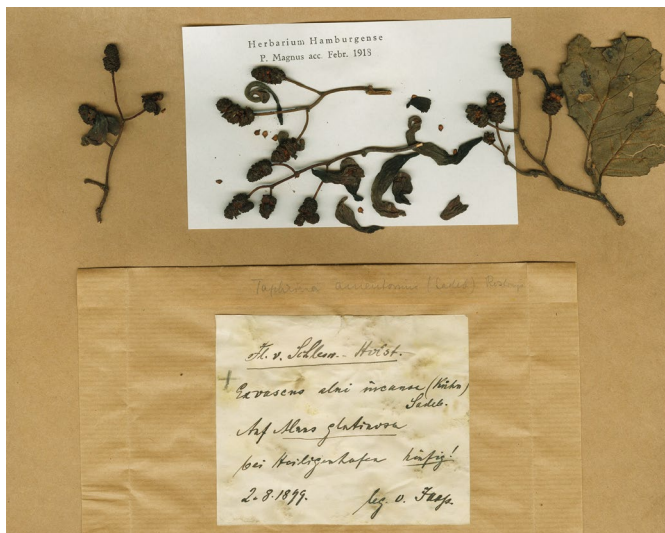 Herbarium Hamburgense
P. Magnus acc. Febr. 1913
Taphrina (Sadeb)
Fl. v. Schlesw.-Holst.
+ Exoascus alni incanae (Kühn)
Sadeb.
Auf Alnus glutinosa
bei Heiligenhafen häufig!
2.8.1899. leg. O. Jaap.